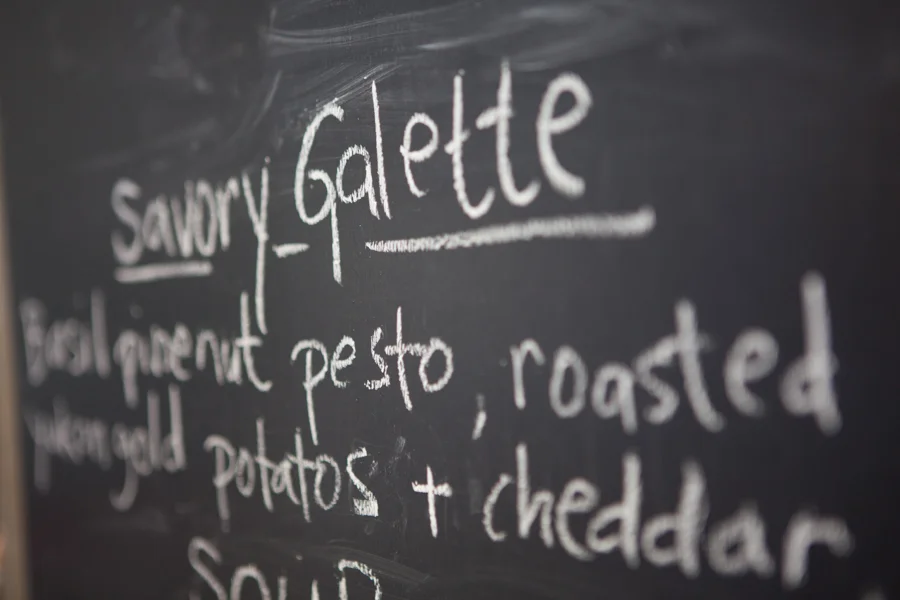 Savory Galette
Basil pinenut pesto, roasted
yukon gold potatos + cheddar
Soup